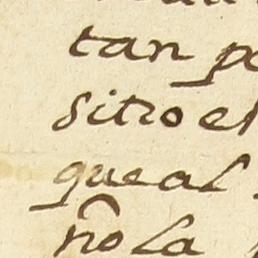 tan p
sitio el
que al
ño la